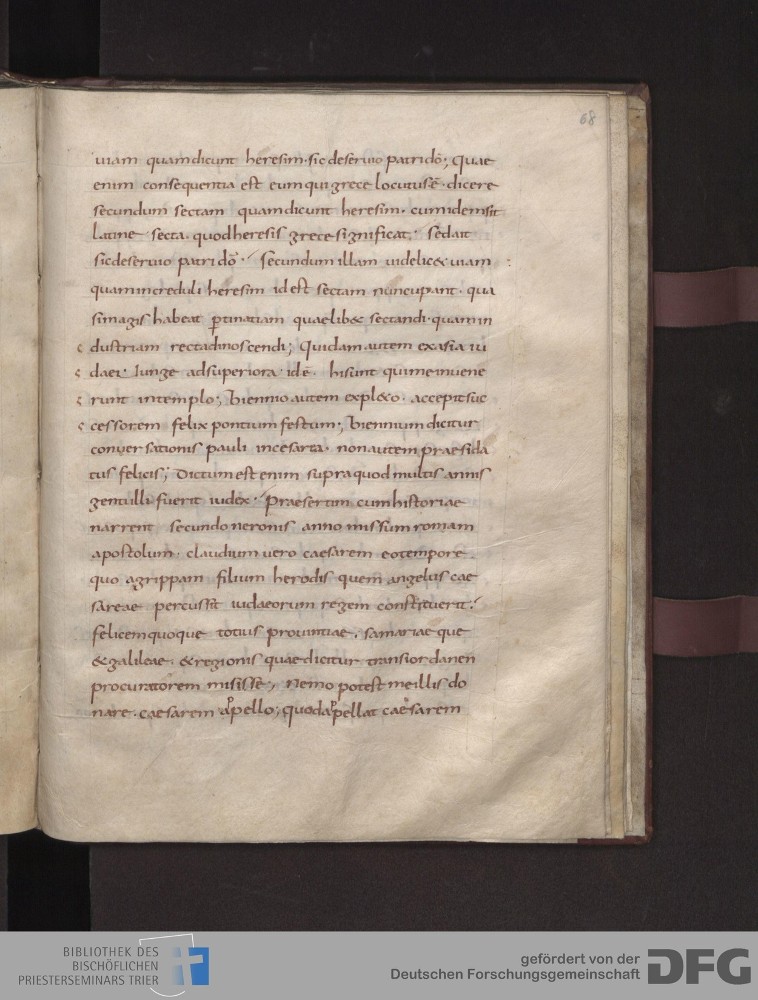 68
uiam quam dicunt heresim · sic deseruio patri dō; Quae
enim consequentia est eum qui grece locutus ē · dicere
secundum sectam quam dicunt heresim · cum idem sit
latine secta · quod heresis grece significat · Sed ait
sic deseruio patri dō · Secundum illam uidelic& uiam
quam increduli heresim id est sectam nuncupant · qua
si magis habeat ꝑtinatiam quaelib& sectandi · quam in
dustriam recta dinoscendi; Quidam autem ex asia iu
daei · Iunge ad superiora · id ē · hi sunt qui me inuene
runt in templo; Biennio autem expl&o · accepit suc
cessorem felix pontium festum; Biennium dicitur
conuersationis pauli in cesarea · non autem praesida
tus felicis; Dictum est enim supra quod multis annis
genti illi fuerit iudex · Praesertim cum historiae
narrent secundo neronis anno missum romam
apostolum · claudium uero caesarem eo tempore
quo agrippam filium herodis quem angelus cae
sareae percussit iudaeorum regem constituerit ·
felicem quoque totius prouintiae · samariae que
& galileae · & regionis quae dicitur trans iordanen
procuratorem misisse; Nemo potest me illis do
nare · caesarem appello; quod appellat caesarem
BIBLIOTHEK DES
BISCHÖFLICHEN
PRIESTERSEMINARS TRIER
gefördert von der
Deutschen Forschungsgemeinschaft
DFG